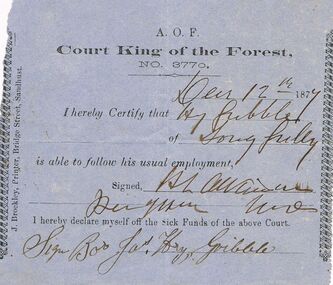 A. O. F.
Court King of the Forest,
NO. 3770.
Decr 12th 1877
I hereby Certify that Hy Gribble
of Long Gully
is able to follow his usual employment,
Signed,
Surgeon
I hereby declare myself off the Sick Funds of the above Court.
Sign Bro Jas Hry Gribble
J. Brockley, Printer, Bridge Street, Sandhurst.